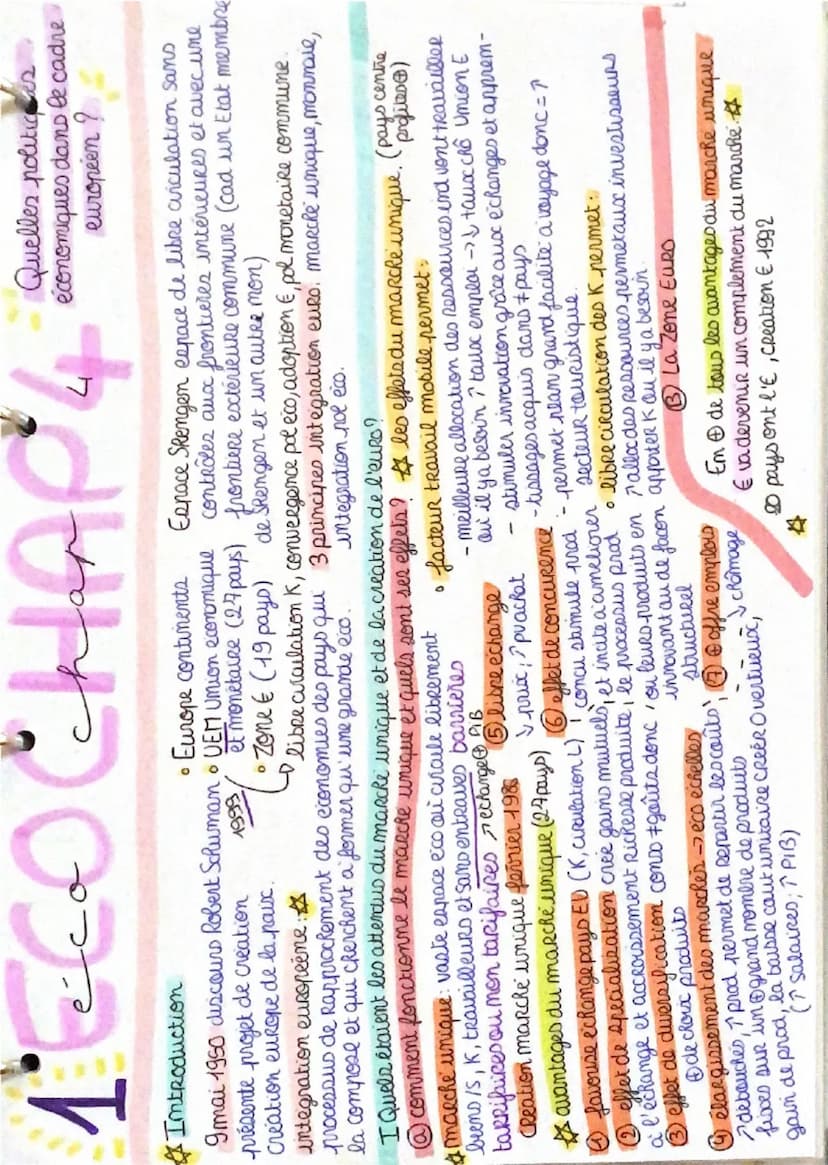 1 ECO CHAP 4
éco chap 4
Quelles politiques
économiques dans le cadre
européen ?
Introduction
9 mai 1950 discours Robert Schuman
présente projet de création
création europe de la paix.
• Europe continents
• UEM Union économique
et monétaire (27 pays)
1999
• Zone € (19 pays)
↳ libre circulation K, convergence pol éco, adoption €, pol monétaire commune.
Espace Shengen espace de libre circulation sans
contrôles aux frontières intérieures et avec une
frontière extérieure commune (cad un Etat membre
de Shengen et un autre non)
intégration européenne :
processus de rapprochement des économies des pays qui
la compose et qui cherchent à former qu'une grande éco.
3 principes integration euro : marché unique, monnaie,
integration pol éco.
I Quels étaient les attendus du marché unique et de la création de l'euro?
a) comment fonctionne le marché unique et quels sont ses effets?
marché unique : vaste espace éco où circule librement
biens/S, K, travailleurs et sans entraves barrières
tarrifaires ou non tarifaires ↗ échange ⊕ PIB
Création marché unique février 1986
☆ avantages du marché unique (27 pays)
① favorise échange pays EU (K, circulation L)
② effet de spécialisation crée gains mutuels
à l'échange et accroissement richesse produite
③ effet de diversification conso ≠ goûts donc
⊕ de choix produits
④ élargissement des marchés → éco échelles
↗ débouchés, ↑ prod permet de repartir les coûts
fixes sur un ⊕ grand nombre de produits
gain de prod, la baisse cout unitaire créer O vertueux,
(↑ salaires, ↑ PIB)
⑤ libre échange
↘ prix, ↗ pv achat
⑥ effet de concurence
concu stimule prod
et incite à améliorer
le processus prod
ou leurs produits en
innovant ou de facon
structurel
⑦ ⊕ offre emplois
↘ chômage
☆ les effets du marché unique. (pays centre
profites ⊕)
• facteur travail mobile permet :
- meilleure allocation des ressources ind vont travailler
où il y a besoin ↑ taux emploi → ↓ taux chô Union E
- stimuler innovation grâce aux échanges et appren-
-tissages acquis dans ≠ pays
- permet grand facilité à voyage donc = ↗
secteur touristique.
• libre circulation des K permet :
↗ alloc des ressources permet aux investisseurs
apporter K ou il y a besoin.
B) La Zone Euro
En ⊕ de tous les avantages du marché unique
€ va devenir un complement du marché.
20 pays ont l'€, création € 1992